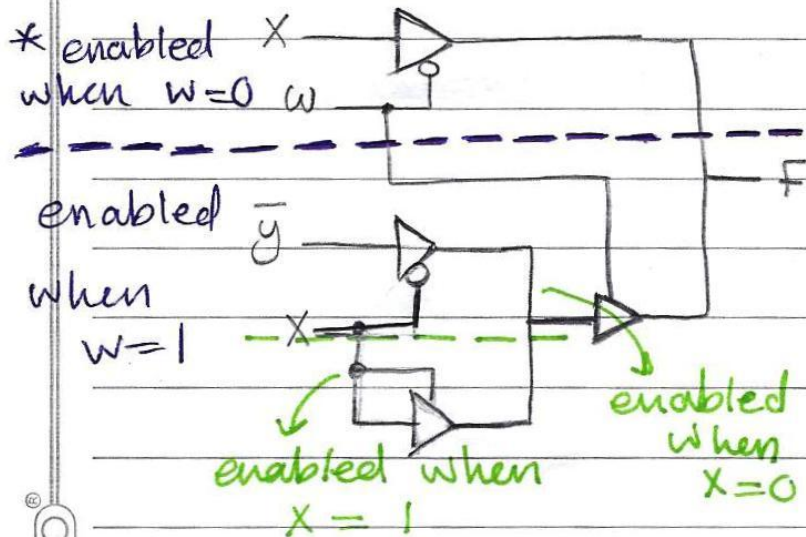 * enabled X
when w=0 w
F
enabled ȳ
when
X
w=1
enabled
when
X=0
enabled when
X = 1
®